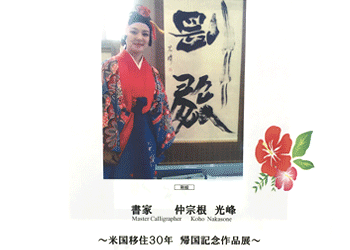 書家 仲宗根 光峰
Master Calligrapher Koho Nakasone
〜米国移住30年 帰国記念作品展〜